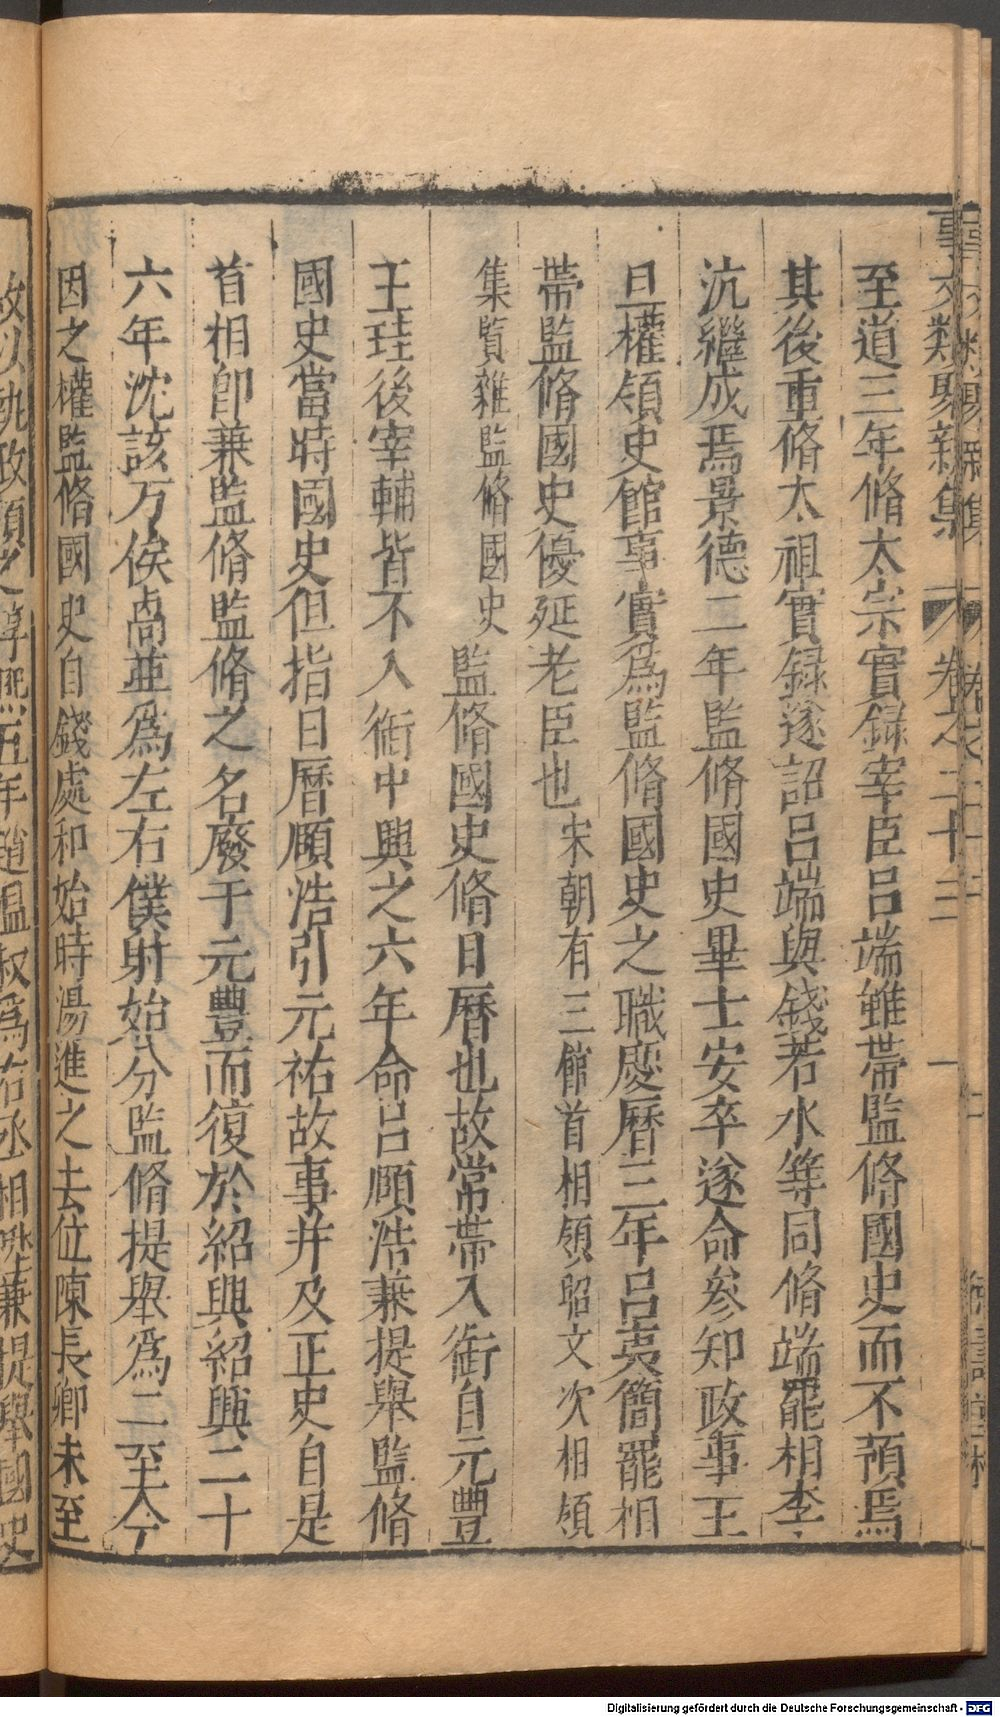 事文類聚新集 卷之二十三 一
至道三年脩太宗實録宰臣呂端雖帶監脩國史而不預焉
其後重脩太祖實録遂詔呂端與錢若水等同脩端罷相李
沆繼成焉景德二年監脩國史畢士安卒遂命參知政事王
旦權領史館事實爲監脩國史之職慶曆三年呂夷簡罷相
帶監脩國史優延老臣也宋朝有三館首相領昭文次相領
集賢雜監脩國史監脩國史脩日曆也故常帶入銜自元豐
王珪後宰輔皆不入銜中興之六年命呂頤浩兼提舉監脩
國史當時國史但指日曆頤浩引元祐故事并及正史自是
首相卽兼監脩監脩之名廢于元豐而復於紹興紹興二十
六年沈該万俟卨並爲左右僕射始分監脩提舉爲二至今
因之權監脩國史自錢處和始時湯進之去位陳長卿未至
故以執政領之淳熙五年趙温叔爲右丞相唑兼提舉國史
Digitalisierung gefördert durch die Deutsche Forschungsgemeinschaft - DFG